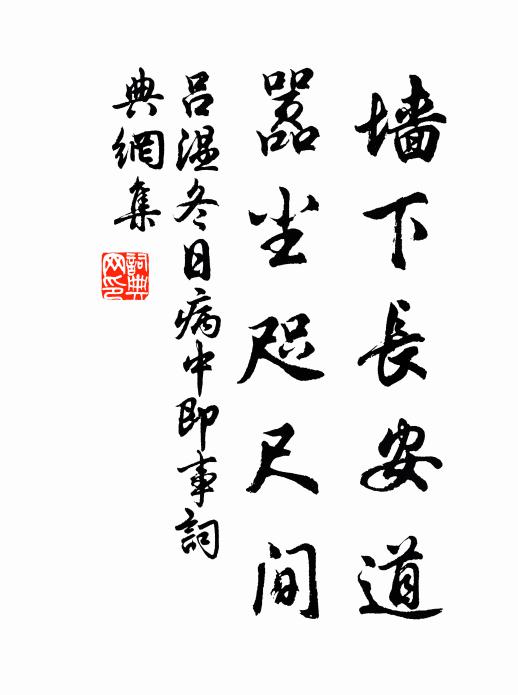 墙下長安道
嚣尘咫尺間
吕温冬日病中即事詞
典網集
詞典网印